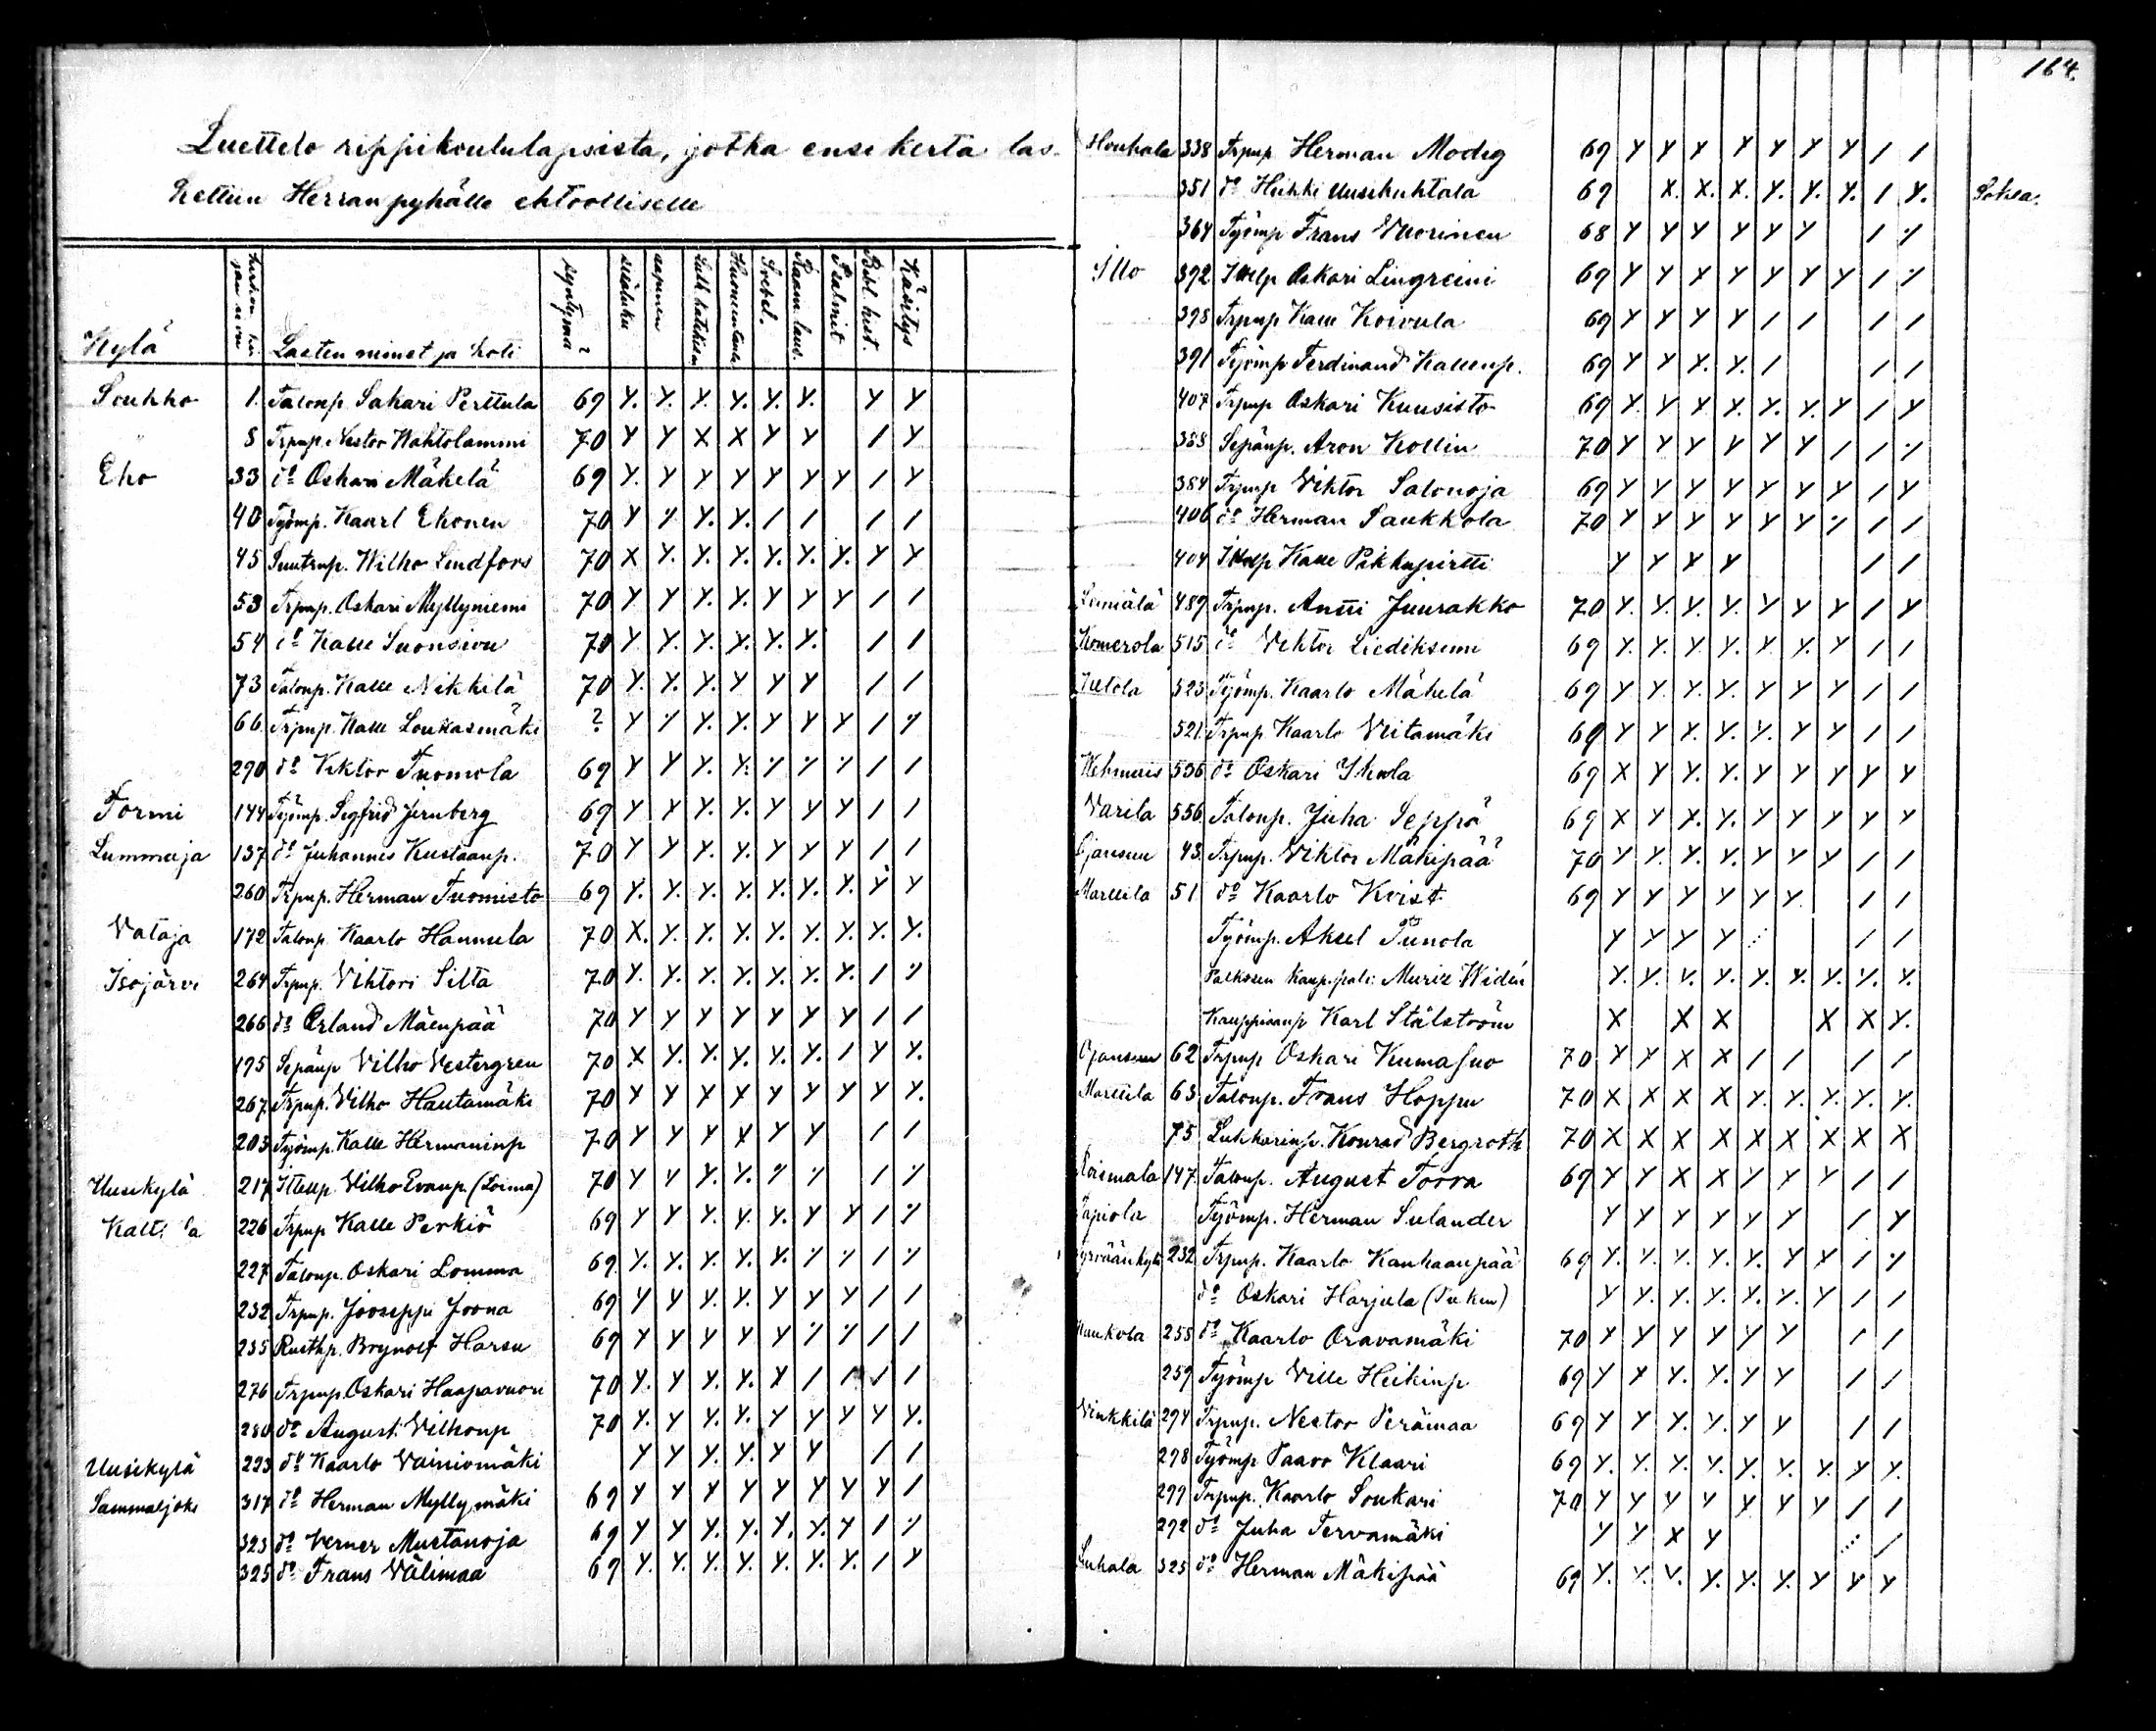 Luettelo rippikoululapsista, jotka ensi kerta las-
kettiin Herran pyhälle ehtoolliselle
Kylä Lasten nimet ja koti syntynyt sisäluku Luth. katekism. Svebel. Raam. laus. Psalmit Bibl. hist. Käsitys
Soukko 1. Talonp. Sakari Perttula 69 Y. Y. Y. Y. Y. Y. Y Y
8 Trpnp. Nestor Wahtolammi 70 Y Y X X Y Y / Y
Eko 33 do Oskari Mäkelä 69 Y. Y Y Y Y Y Y / Y
40 Työmp. Kaarl Ekonen 70 Y ٪ Y. Y. / / / /
45 Suutrnp. Wilho Lindfors 70 X Y. Y. Y. Y. Y. Y. Y Y
53 Trpnp. Oskari Myllyniemi 70 Y Y Y. Y. Y Y Y / /
54 do Kalle Suonsivu 70 Y Y. Y. Y. Y. Y. / /
73 Talonp. Kalle Nikkilä 70 Y. Y. Y. Y Y Y / /
66 Trpnp. Kalle Loukasmäki ? Y ٪ Y. Y. Y Y Y / ٪
290 do Viktor Tuomola 69 Y Y Y. Y. ٪ ٪ ٪ / /
Tormi 144 Työmp. Segfrid Jernberg 69 Y Y Y. Y. Y Y Y / /
Lummaja 137 do Juhannes Kustaanp. 70 Y Y Y. Y. Y Y Y / /
260 Trpnp. Herman Tuomisto 69 Y. Y. Y. Y. Y. Y. Y. Y Y
Vataja 172 Talonp. Kaarlo Hannula 70 X. Y. Y. Y. Y. Y. Y. Y. Y.
Isojärvi 264 Trpnp. Vihtori Silta 70 Y. Y. Y. Y. Y. Y. Y. / ٪
266 do Erland Mäenpää 70 Y Y Y Y Y Y Y / /
195 Sepänp Vilho Vestergren 70 X Y. Y. Y. Y. Y. / Y Y.
267 Trpnp. Vilho Hautamäki 70 Y Y Y Y Y Y Y Y Y.
203 Työmp. Kalle Hermaninp 70 Y Y Y Y Y Y / /
Uusikylä 217 Vilho Evanp. (Loima) 70 Y Y Y. Y. ٪ ٪ / ٪
226 Trpnp Kalle Perkiö 69 Y Y Y. Y. Y. Y Y / ٪
227 Talonp. Oskari Lomma 69 Y. Y. Y. Y. Y. ٪ ٪ / ٪
232 Trpnp. Jooseppi Joona 69 Y Y Y. Y. Y Y Y / /
235 Rusthp. Brynolf Harsu 69 Y Y Y Y Y ٪ ٪ / /
276 Trpnp. Oskari Haapavuori 70 Y. Y Y. Y. Y / / / /
280 do August Vilhonp 70 Y. Y Y. Y. Y Y Y Y Y.
Uusikylä 223 do Kaarlo Vainiomäki Y Y Y. Y. Y Y / /
Sammaljoki 317 do Herman Myllymäki 69 Y Y Y Y Y Y Y Y /
323 do Verner Mustanoja 69 Y Y Y. Y. Y. Y. Y / ٪
325 do Frans Välimaa 69 Y. Y. Y. Y. Y. Y. Y. / Y
164.
Houhala 338 Trpnp Herman Modig 69 Y Y Y Y Y Y Y / /
351 do Heikki Uusihuhtala 69 X. X. X. Y. Y. Y. / Y.
364 Työmp Frans Vuorinen 68 Y Y Y Y Y Y / ٪
Illo 392 Oskari Lingreeni 69 Y Y Y Y Y Y Y / ٪
398 Trpnp Kalle Koivula 69 Y Y Y Y / / / /
391 Työmp Ferdinand Kallenp. 69 Y Y Y. Y. / / /
407 Trpnp Oskari Kuusisto 69 Y. Y Y Y. Y. Y. Y / Y
388 Sepänp. Aron Kollin 70 Y Y Y Y Y Y / / ٪
384 Trpnp Viktor Salonoja 69 Y Y Y Y Y Y Y / Y
406 do Herman Saukkola 70 Y Y Y Y Y Y ٪ / /
404 Kalle Pikkupirtti Y Y Y Y / /
489 Trpnp. Antti Juurakko 70 Y. Y. Y. Y. Y Y Y / Y
Komerola 515 do Vihtor Liediksemi 69 Y. Y. Y. Y. Y. Y. Y / /
Jutola 523 Työmp. Kaarlo Mäkelä 69 Y Y Y. Y. Y Y Y / /
521 Trpnp Kaarlo Viitamäki 69 Y Y Y. Y. Y. Y Y / /
536 do Oskari 69 X Y Y. Y. Y Y Y Y Y
Varila 556 Talonp. Juha Seppä 69 X Y X. Y. Y Y Y Y Y
Ojansuu 43 Trpnp. Viktor Mäkipää 70 Y Y. Y. Y. Y Y Y / /
Marttila 51 do Kaarlo Kvist 69 Y Y Y Y Y Y / /
Työmp. Aksel Punola Y Y Y Y / /
Y. Y. Y. Y. Y. Y. Y. Y. Y.
Kauppiaanp Karl Stålström X X X X X Y.
Ojansuu 62 Trpnp Oskari Kumasuo 70 Y Y X X / / / /
Marttila 63 Talonp. Frans Hoppu 70 X X X X Y. Y. Y. Y. Y.
75 Lukkarinp. Konrad Bergroth 70 X X X X X X X X X
147 Talonp. August Torra 69 Y Y X X / Y Y / /
Tapiola Työmp. Herman Sulander Y Y Y Y Y Y / Y
232 Trpnp. Kaarlo Kankaanpää 69 Y. Y. Y. Y. Y. Y Y / ٪
do Oskari Harjula Y Y. Y. Y. Y. Y. Y / /
255 do Kaarlo Oravamäki 70 Y Y Y Y Y Y / /
259 Työmp Ville Heikinp 69 Y Y Y. Y. Y Y / /
Vinkkilä 294 Trpnp. Nestor Perämaa 69 Y Y Y Y. Y Y / /
298 Työmp Paavo Klaari 69 Y. Y. Y. Y. Y. Y. Y. Y Y.
299 Trpnp. Kaarlo Soukari 70 Y Y Y Y Y Y Y / /
292 do Juha Tervamäki Y Y X Y /
325 do Herman Mäkipää 69 Y. Y. Y. Y. Y. Y. Y Y